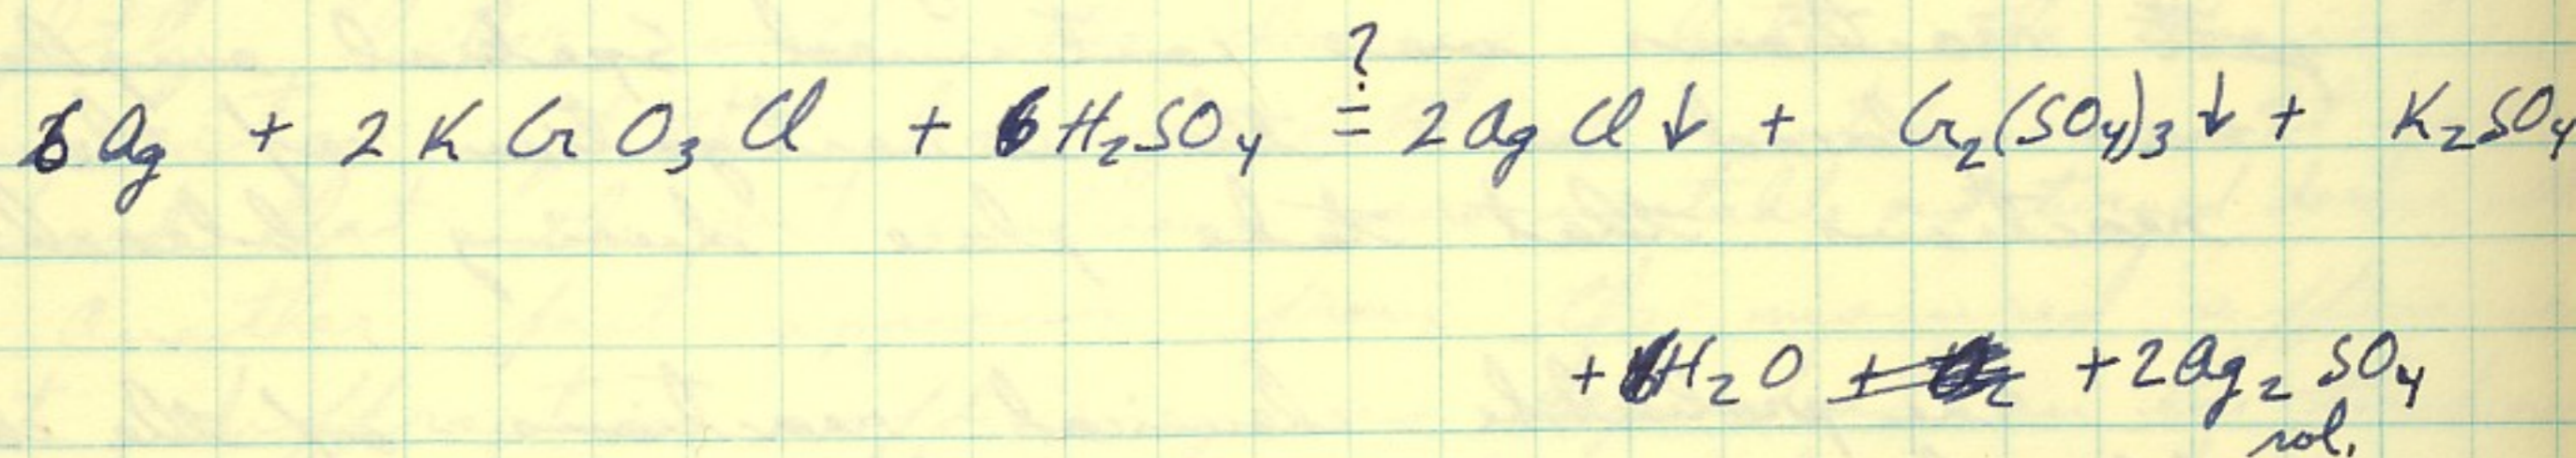 6Ag + 2KCrO₃Cl + 6H₂SO₄ ?= 2AgCl↓ + Cr₂(SO₄)₃↓ + K₂SO₄
+ 6H₂O + 2Ag₂SO₄
sol.